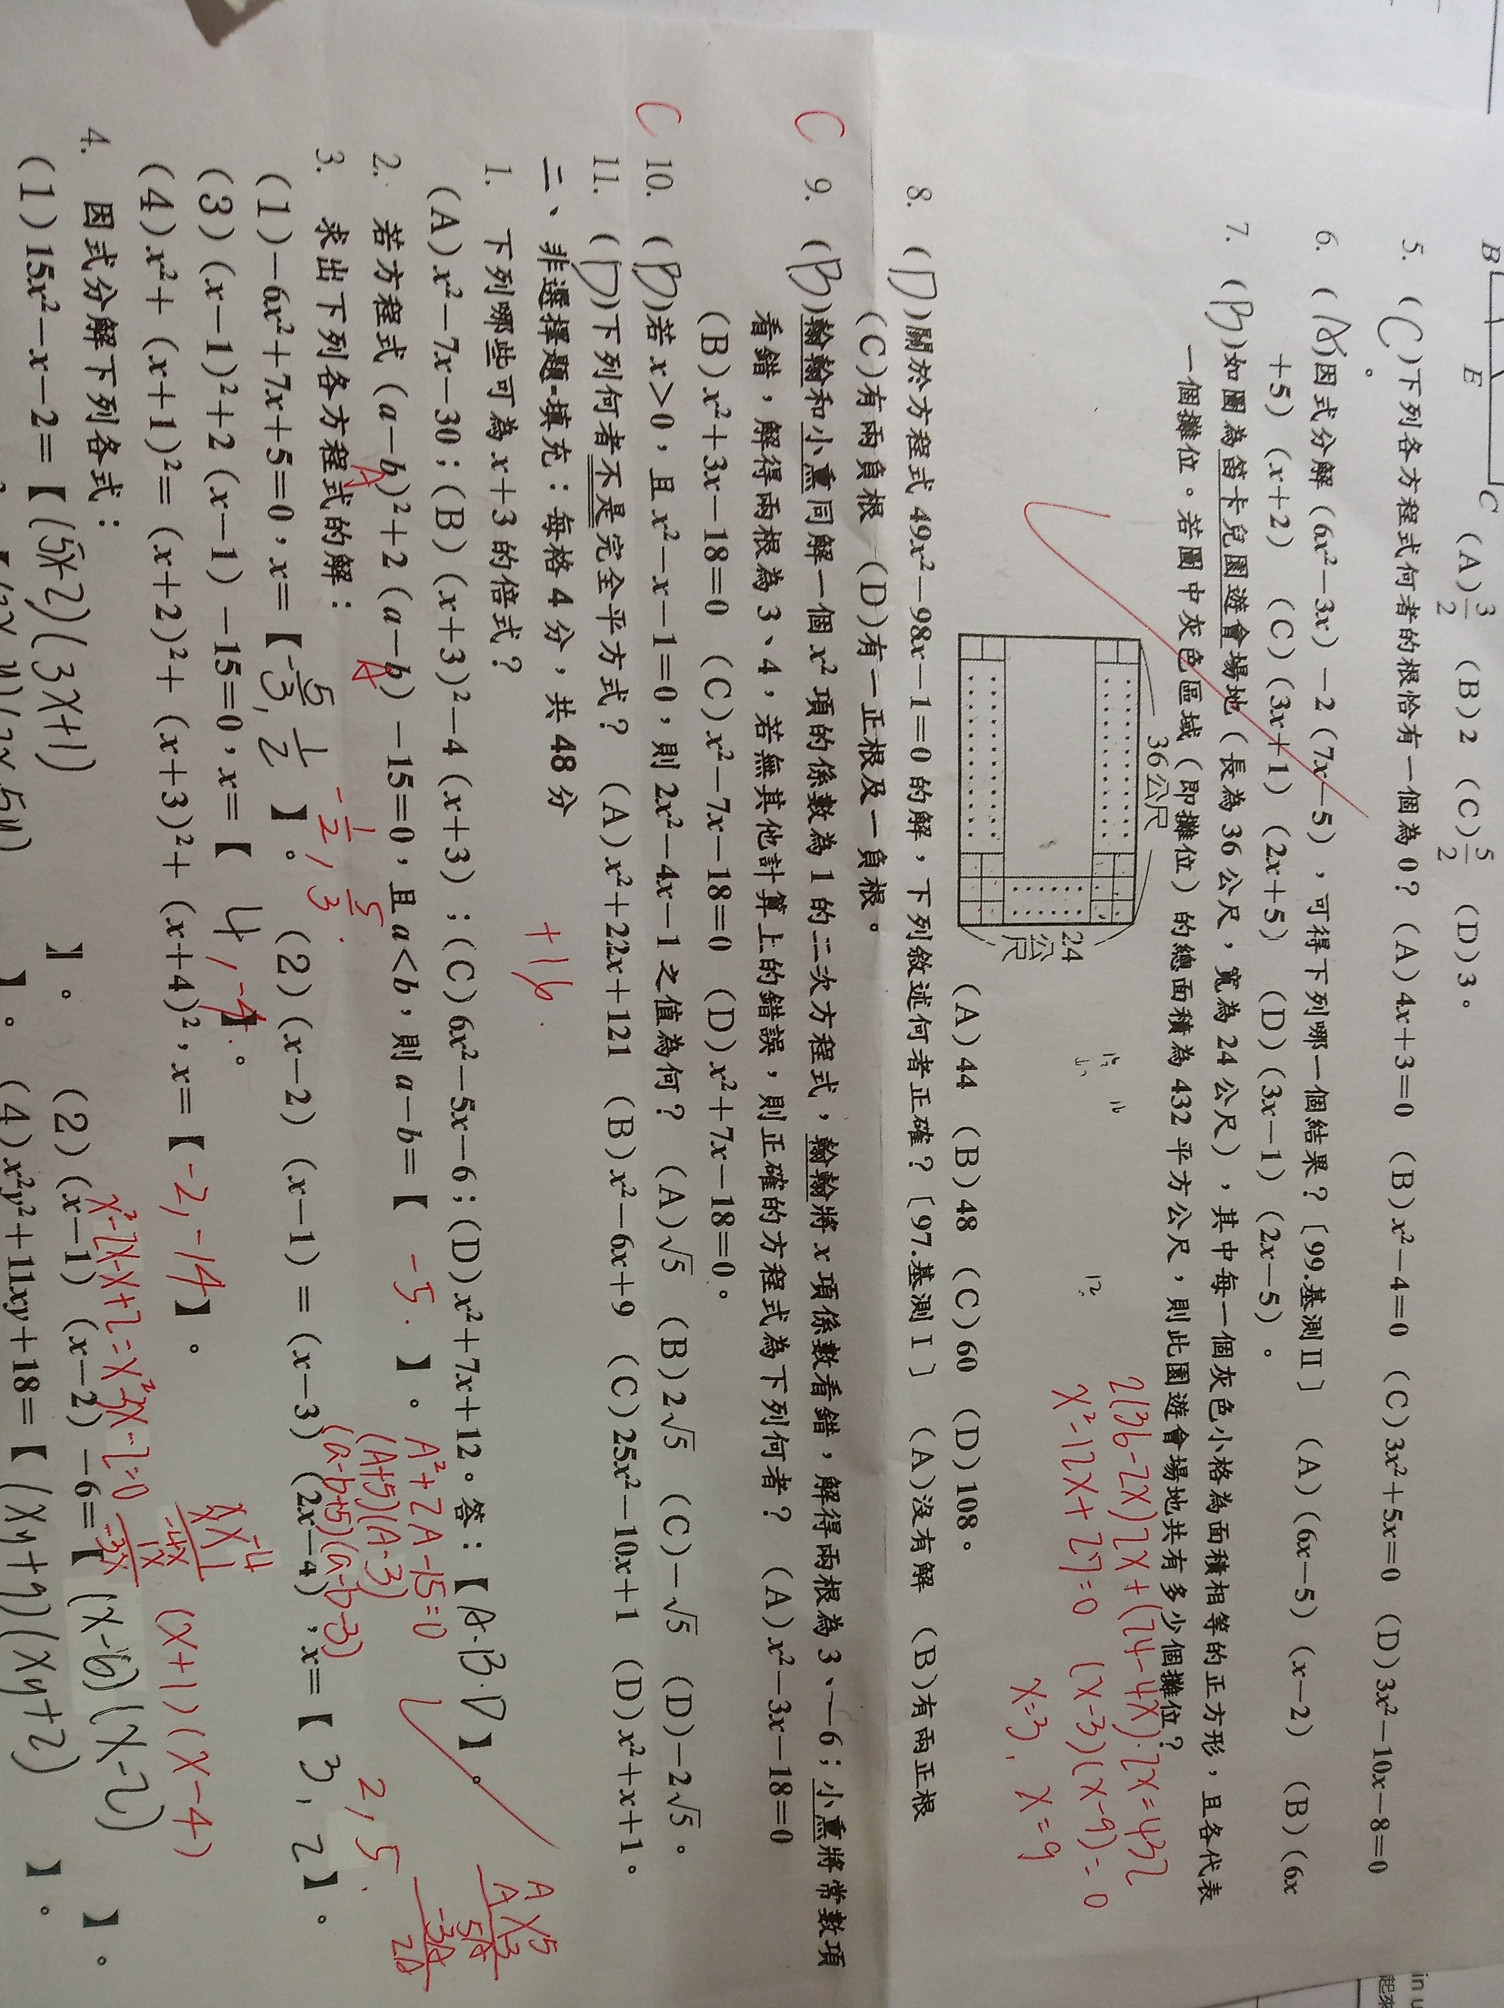 B E C (A)3/2 (B)2 (C)5/2 (D)3。
5. (C)下列各方程式何者的根恰有一個為0？(A)4x+3=0 (B)x²-4=0 (C)3x²+5x=0 (D)3x²-10x-8=0
。
6. (A)因式分解(6x²-3x)-2(7x-5)，可得下列哪一個結果？〔99.基測Ⅱ〕 (A)(6x-5)(x-2) (B)(6x
+5)(x+2) (C)(3x+1)(2x+5) (D)(3x-1)(2x-5)。
7. (B)如圖為笛卡兒園遊會場地(長為36公尺，寬為24公尺)，其中每一個灰色小格為面積相等的正方形，且各代表
一個攤位。若圖中灰色區域(即攤位)的總面積為432平方公尺，則此園遊會場地共有多少個攤位？
36公尺
24公尺
2(36-2x)2x+(24-4x)·2x=432
x²-12x+27=0 (x-3)(x-9)=0
x=3, x=9
12
(A)44 (B)48 (C)60 (D)108。
8. (D)關於方程式49x²-98x-1=0的解，下列敘述何者正確？〔97.基測Ⅰ〕 (A)沒有解 (B)有兩正根
(C)有兩負根 (D)有一正根及一負根。
C 9. (B)翰翰和小熏同解一個x²項的係數為1的二次方程式，翰翰將x項係數看錯，解得兩根為3、-6；小熏將常數項
看錯，解得兩根為3、4，若無其他計算上的錯誤，則正確的方程式為下列何者？ (A)x²-3x-18=0
(B)x²+3x-18=0 (C)x²-7x-18=0 (D)x²+7x-18=0。
C 10. (B)若x>0，且x²-x-1=0，則2x²-4x-1之值為何？ (A)√5 (B)2√5 (C)-√5 (D)-2√5。
11. (D)下列何者不是完全平方式？ (A)x²+22x+121 (B)x²-6x+9 (C)25x²-10x+1 (D)x²+x+1。
二、非選擇題-填充：每格4分，共48分
+16
1. 下列哪些可為x+3的倍式？
(A)x²-7x-30；(B)(x+3)²-4(x+3)；(C)6x²-5x-6；(D)x²+7x+12。答：【A.B.D】。
2. 若方程式(a-b)²+2(a-b)-15=0，且a<b，則a-b=【-5.】。
A A
A²+2A-15=0
(A+5)(A-3)
(a-b+5)(a-b-3)
A 5
A -3
5A
-3A
2A
3. 求出下列各方程式的解：
(1)-6x²+7x+5=0，x=【-5/3, 1/2】。 (2)(x-2)(x-1)=(x-3)(2x-4)，x=【3, 2】。
-1/2, 5/3.
2, 5.
(3)(x-1)²+2(x-1)-15=0，x=【4, -4】。
(4)x²+(x+1)²=(x+2)²+(x+3)²+(x+4)²，x=【-2, -14】。
x²-2x-x+2=x²-3x-2=0
x -4
x 1
-4x
1x
-3x
(x+1)(x-4)
4. 因式分解下列各式：
(1)15x²-x-2=【(5x-2)(3x+1)】。 (2)(x-1)(x-2)-6=【(x-6)(x-2)】。
(4)x²y²+11xy+18=【(xy+9)(xy+2)】。